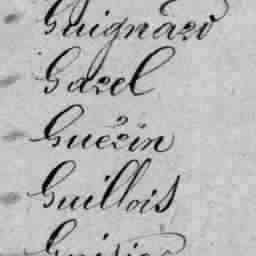 Guignard
Gazel
Guérin
Guillois